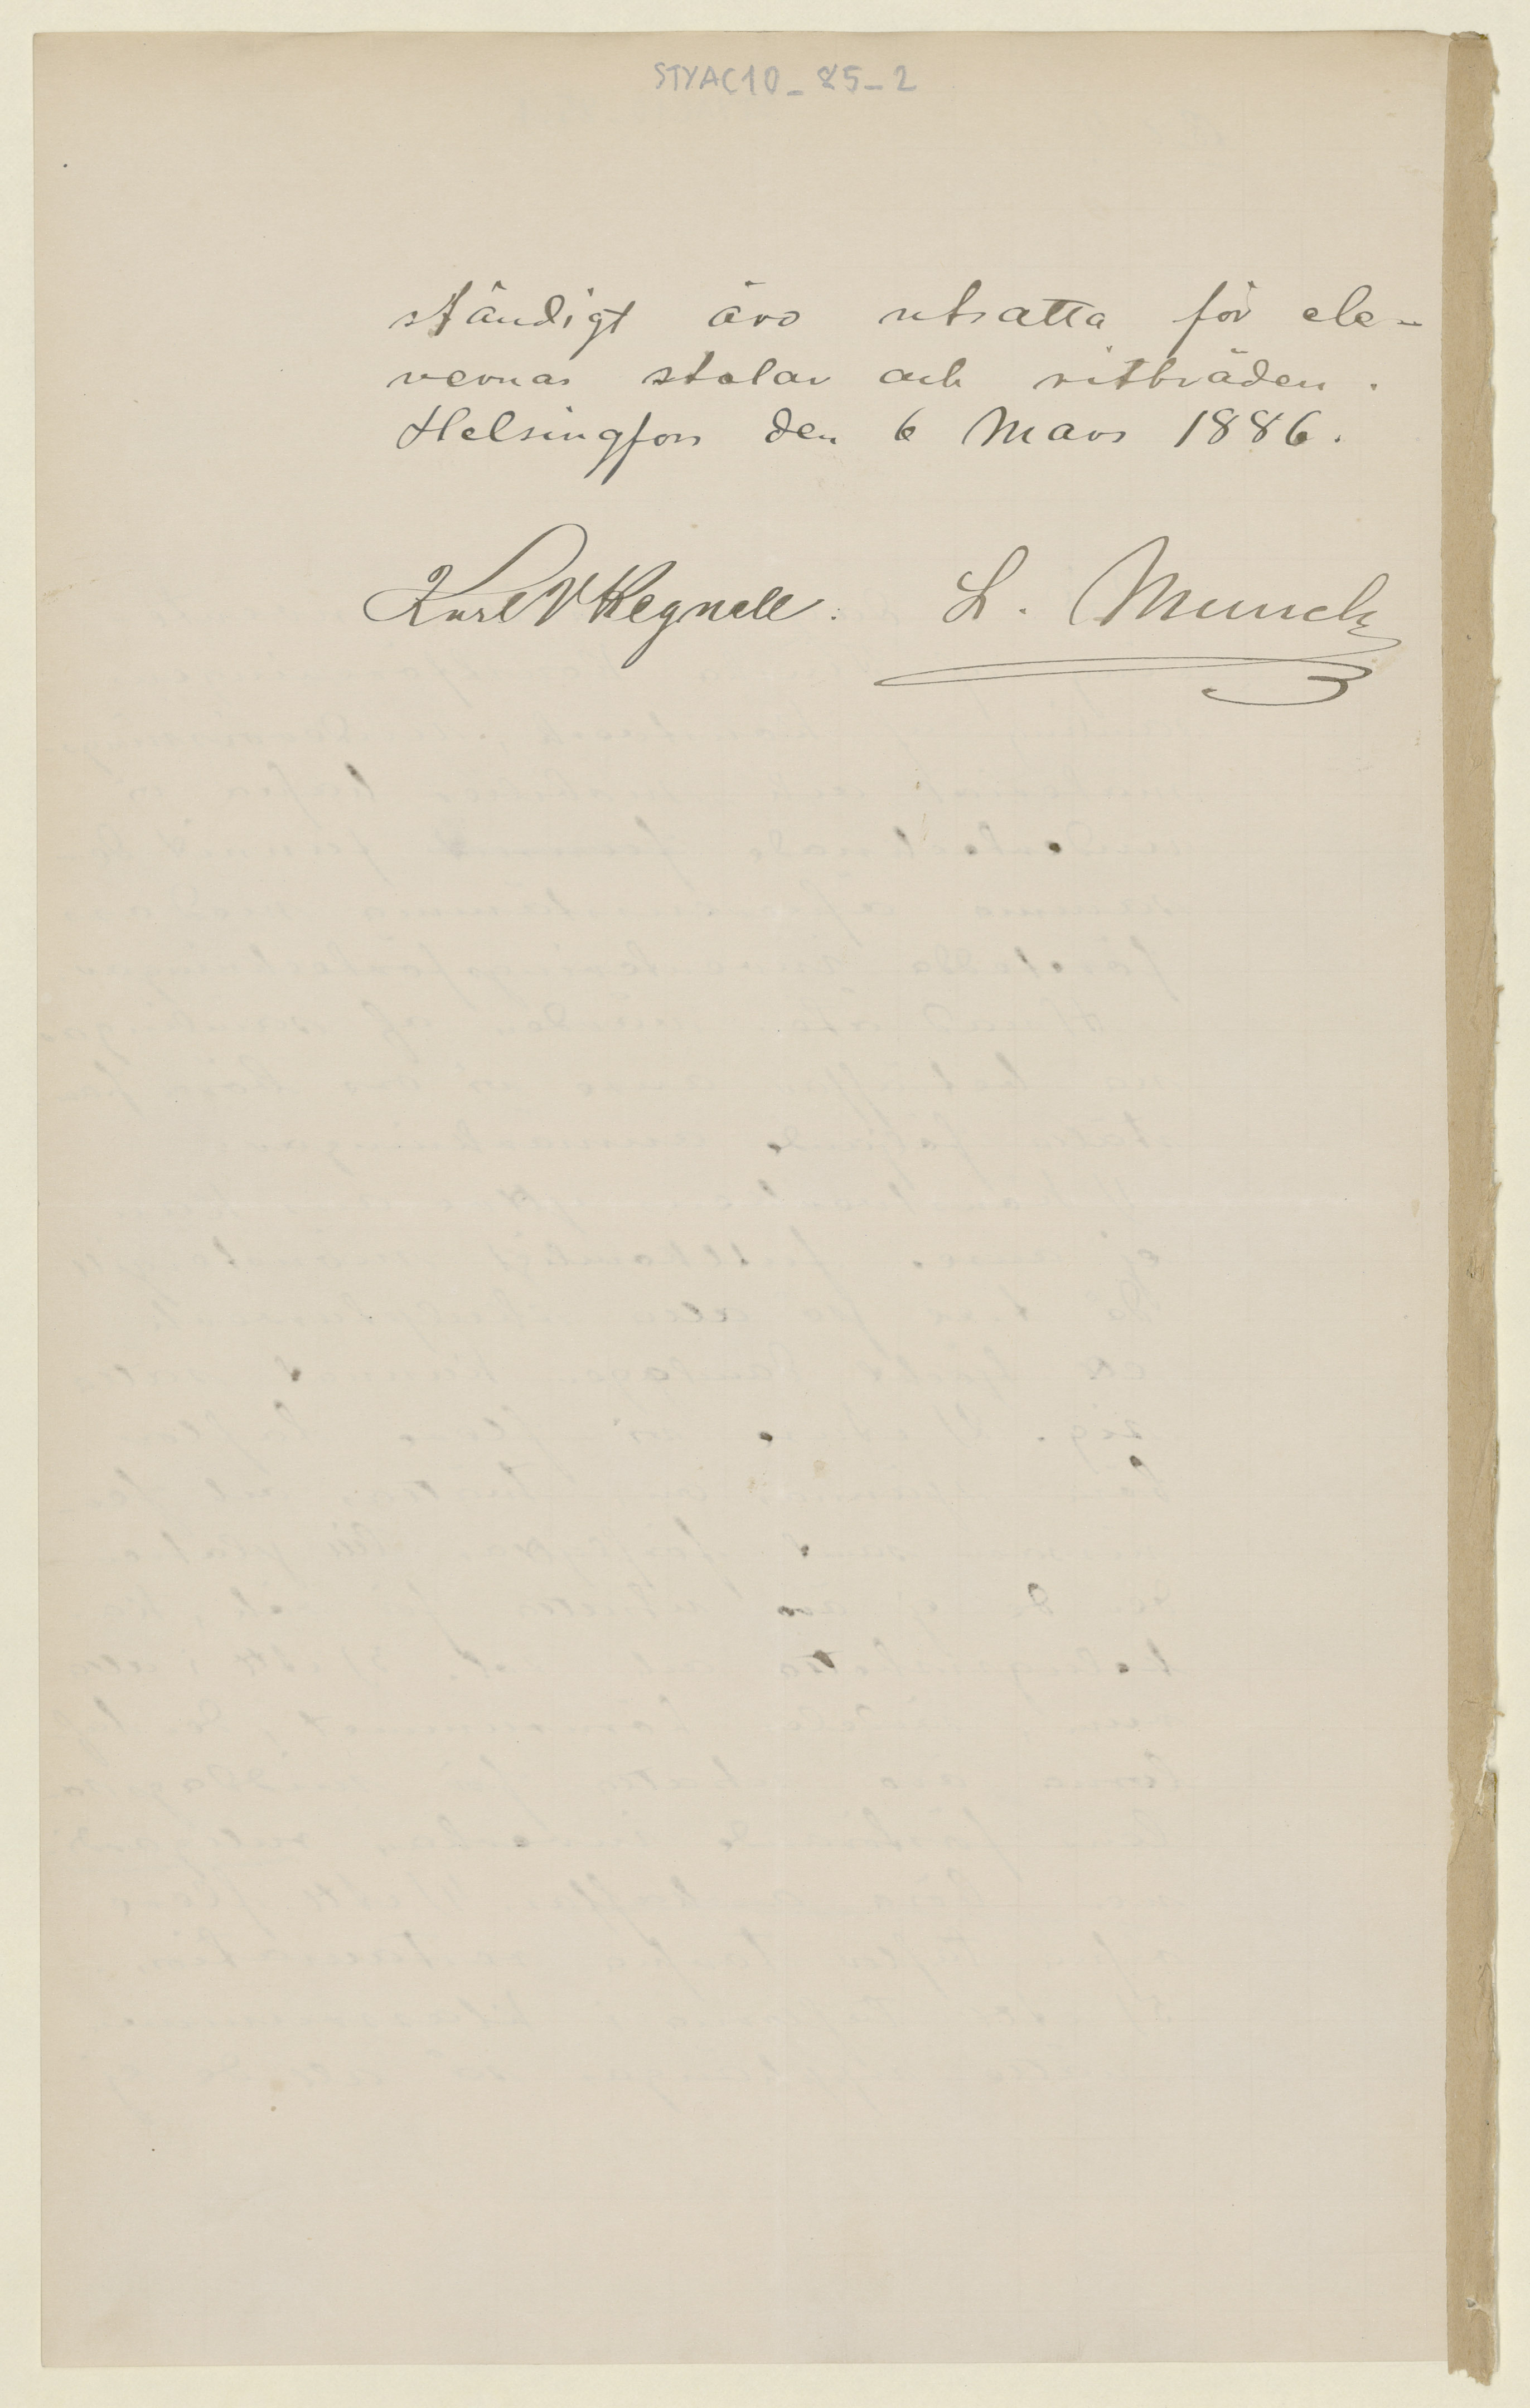 STYAC10_25_2
ständigt äro utsatta för ele-
vernas stolar och ritbräden.
Helsingfors den 6 Mars 1886.
Karl V Regnell. L. Munch